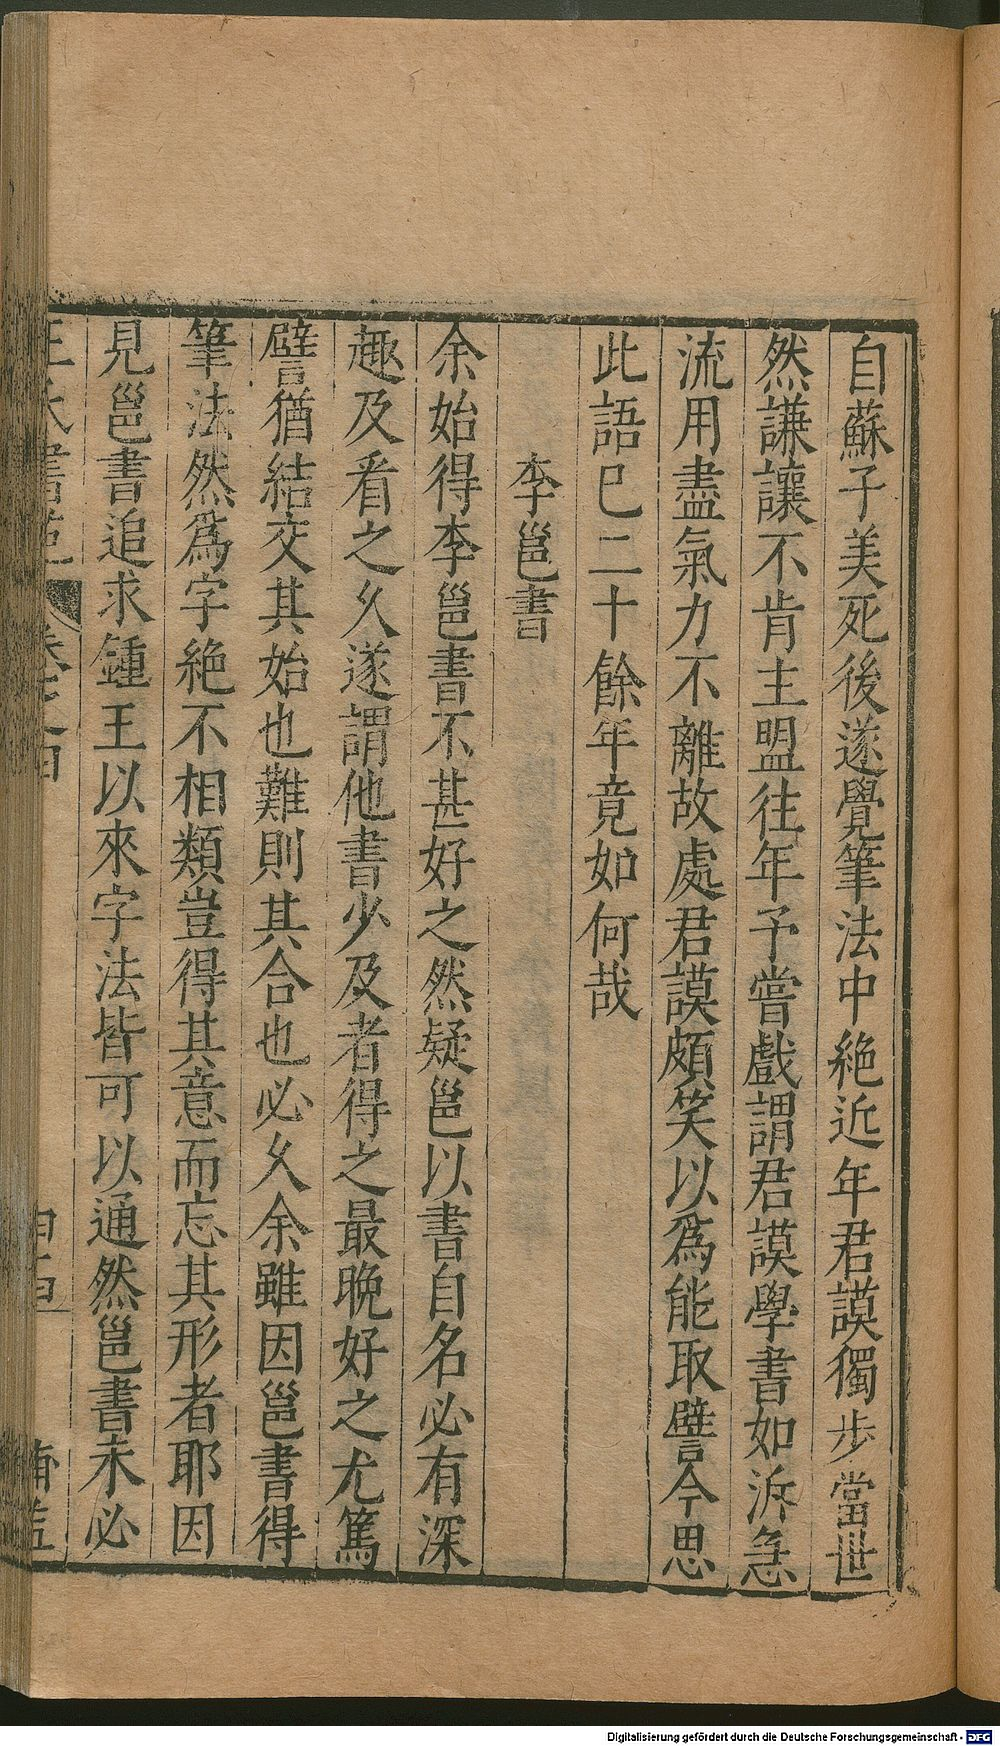 自蘇子美死後遂覺筆法中絶近年君謨獨步當世
然謙讓不肯主盟往年予嘗戲謂君謨學書如泝急
流用盡氣力不離故處君謨頗笑以爲能取譬今思
此語已二十餘年竟如何哉
李邕書
余始得李邕書不甚好之然疑邕以書自名必有深
趣及看之久遂謂他書少及者得之最晚好之尤篤
譬猶結交其始也難則其合也必久余雖因邕書得
筆法然爲字絶不相類豈得其意而忘其形者耶因
見邕書追求鍾王以來字法皆可以通然邕書未必
王氏書苑
Digitalisierung gefördert durch die Deutsche Forschungsgemeinschaft - DFG